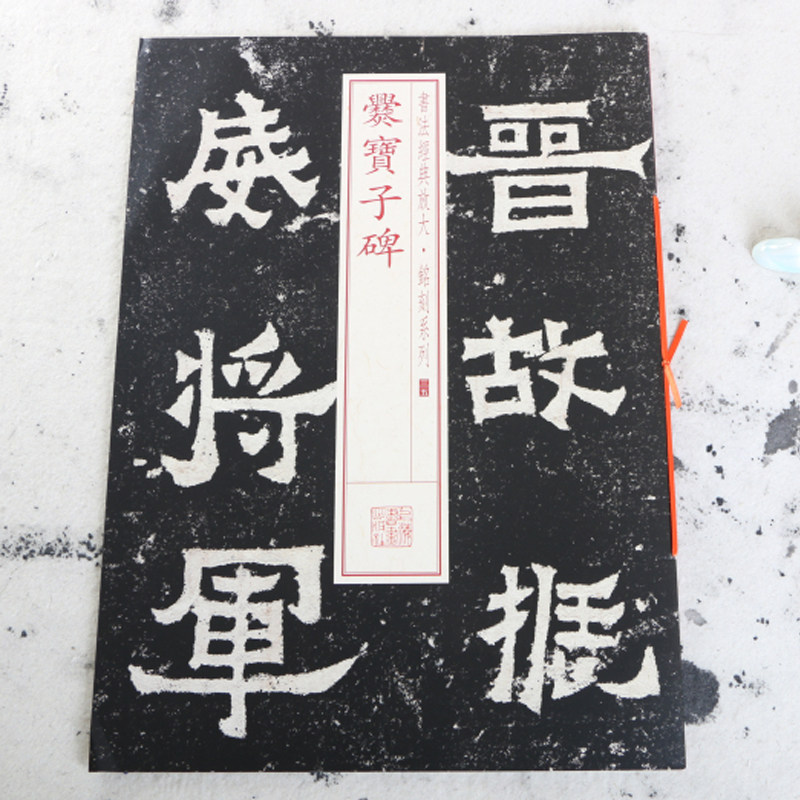 晋故振
威将軍
書法經典放大·銘刻系列
爨寶子碑